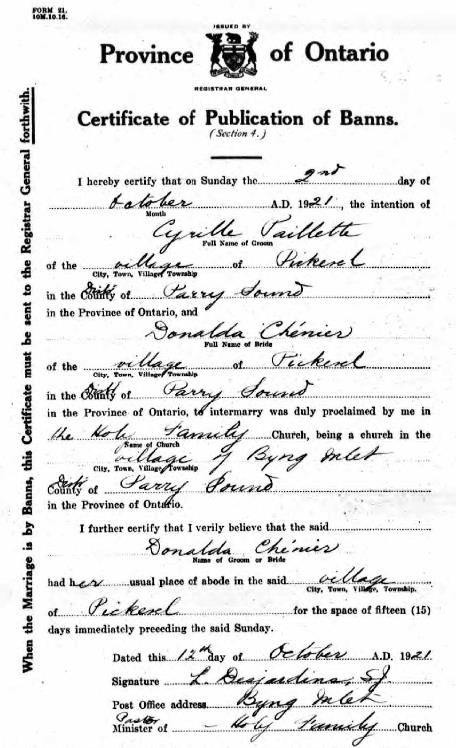 FORM 21.
10M.10.16.
ISSUED BY
Province of Ontario
REGISTRAR GENERAL
Certificate of Publication of Banns.
(Section 4.)
When the Marriage is by Banns, this Certificate must be sent to the Registrar General forthwith.
I hereby certify that on Sunday the 2nd day of
October A.D. 1921, the intention of
Month
Cyrille Paillette
Full Name of Groom
of the village of Pickerel
City, Town, Village, Township
in the Dist. County of Parry Sound
in the Province of Ontario, and
Donalda Chénier
Full Name of Bride
of the village of Pickerel
City, Town, Village, Township
in the Dist. County of Parry Sound
in the Province of Ontario, to intermarry was duly proclaimed by me in
the Holy Family Church, being a church in the
Name of Church
village of Byng Inlet
City, Town, Village, Township
Dist. County of Parry Sound
in the Province of Ontario.
I further certify that I verily believe that the said
Donalda Chénier
Name of Groom or Bride
had her usual place of abode in the said village
City, Town, Village, Township.
of Pickerel for the space of fifteen (15)
days immediately preceding the said Sunday.
Dated this 12th day of October A.D. 1921
Signature L. Desjardins, S.J.
Post Office address Byng Inlet
Pastor
Minister of - Holy Family Church